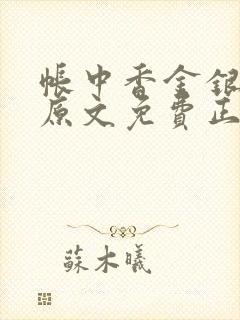 帳中香金銀
原文免費正
蘇木曦